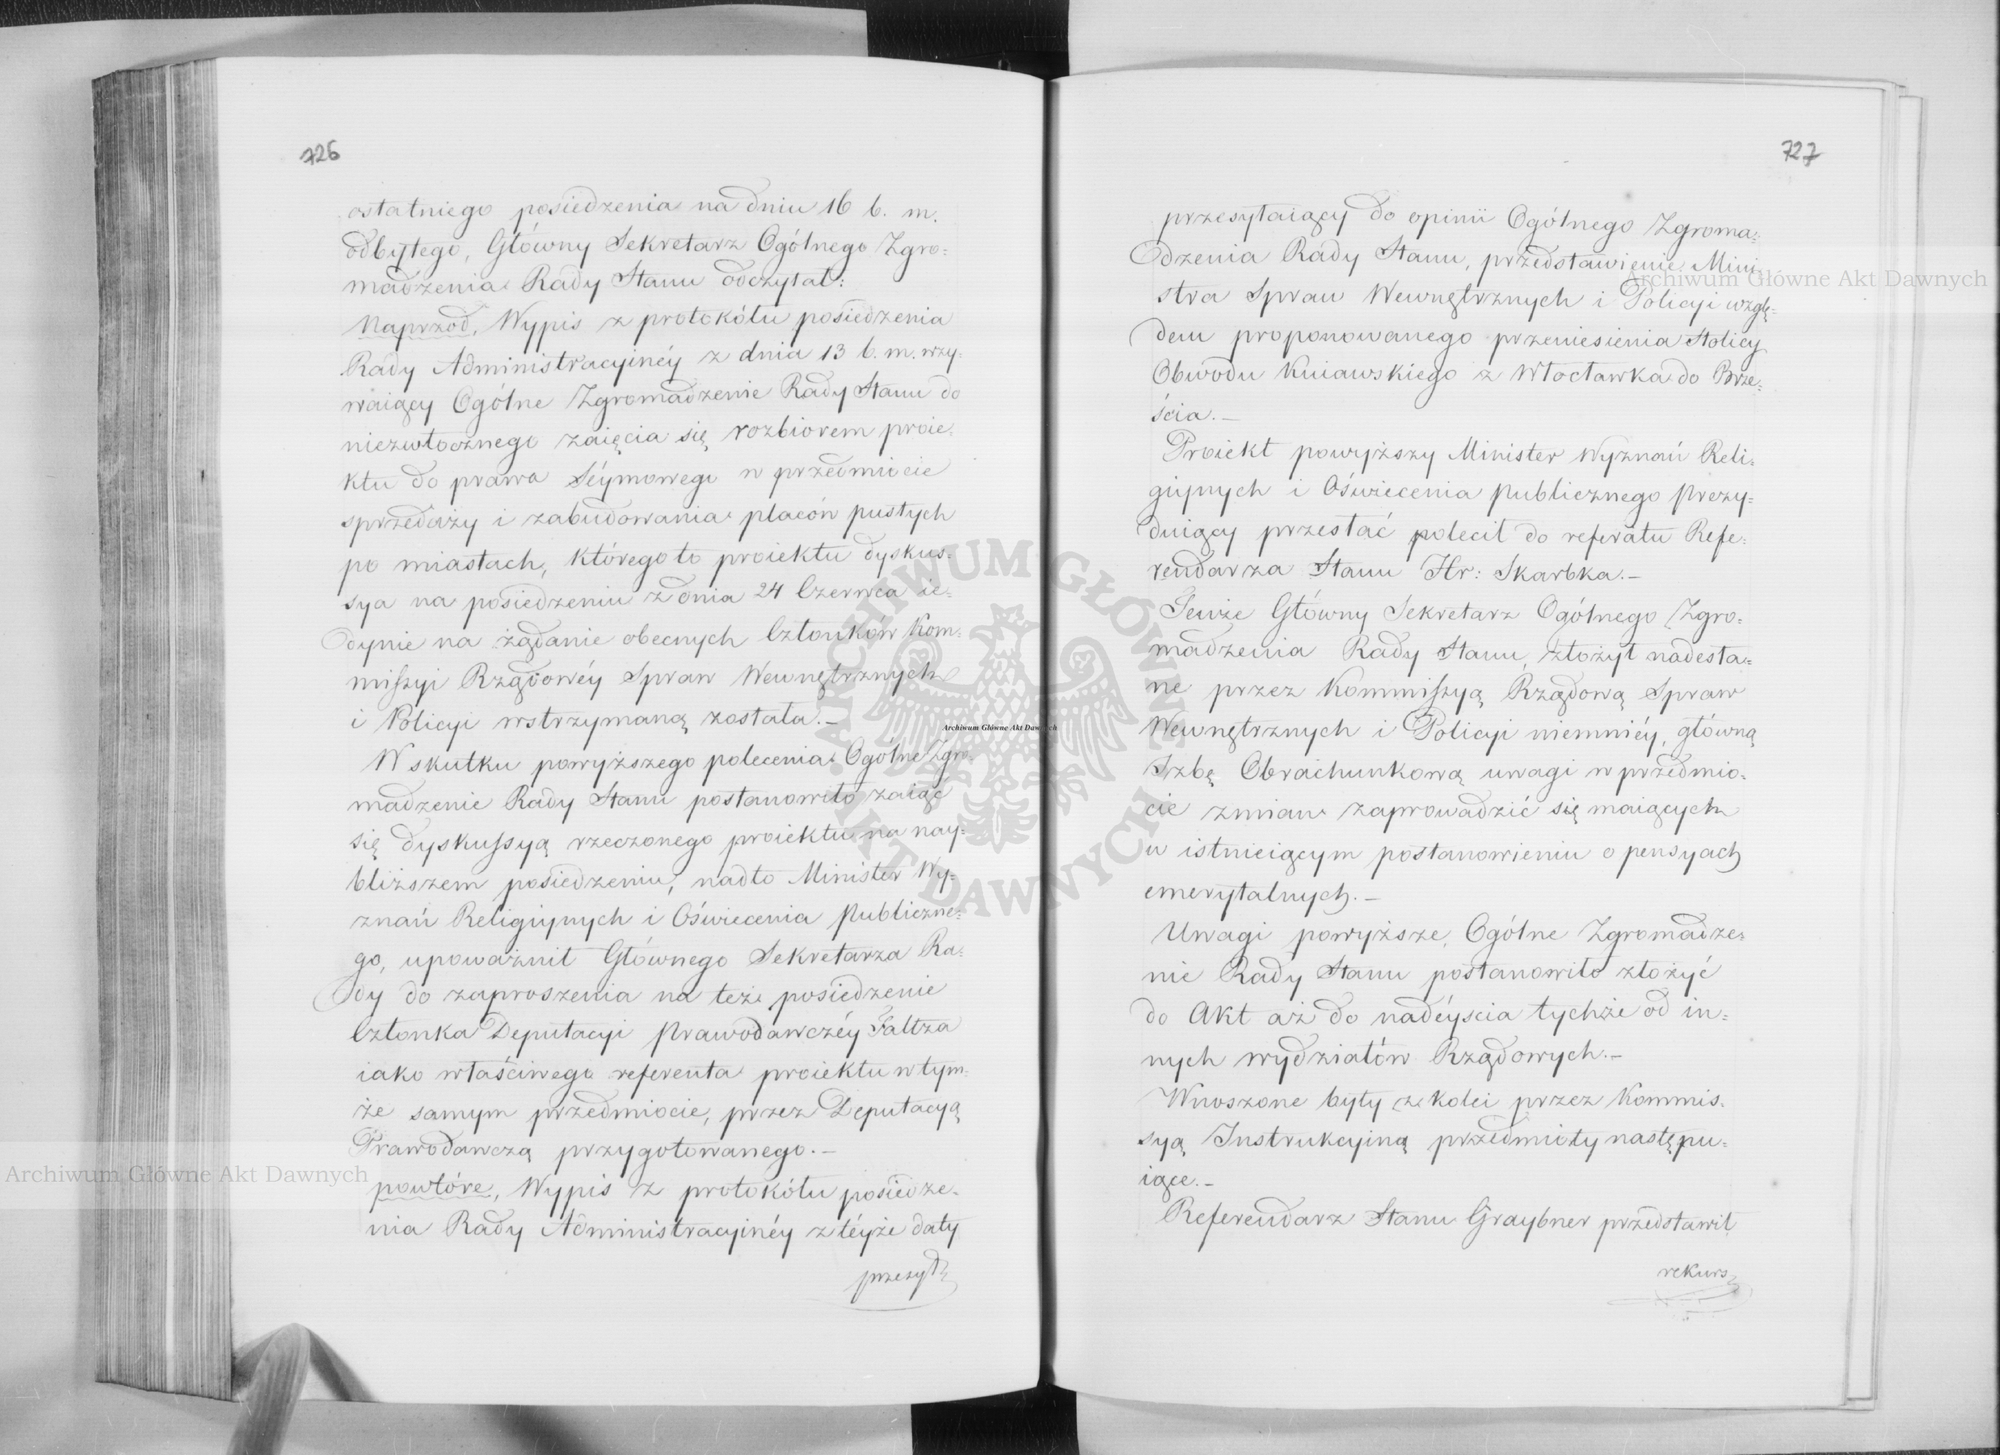 726
ostatniego posiedzenia na dniu 16 b. m.
odbytego, Główny Sekretarz Ogólnego Zgro-
madzenia Rady Stanu odczytał:
Naprzod, Wypis z protokółu posiedzenia
Rady Administracyinéy z dnia 13 b. m. wzy-
waiący Ogólne Zgromadzenie Rady Stanu do
niezwłocznego zaięcia się rozbiorem proie-
ktu do prawa Séymowego w przedmiocie
sprzedaży i zabudowania placów pustych
po miastach, którego to proiektu dyskus-
sya na posiedzeniu z dnia 24 Czerwca ie-
dynie na żądanie obecnych Członków Kom-
missyi Rządowéy Spraw Wewnętrznych
i Policyi wstrzymaną została.—
W skutku powyższego polecenia Ogólne Zgro-
madzenie Rady Stanu postanowiło zaiąć
się dyskussyą rzeczonego proiektu na nay-
bliższem posiedzeniu, nadto Minister Wy-
znań Religiynych i Oświecenia Publiczne-
go, upoważnił Głównego Sekretarza Ra-
dy do zaproszenia na też posiedzenie
Członka Deputacyi Prawodawczéy Faltza
iako właściwego referenta proiektu w tym-
że samym przedmiocie, przez Deputacyą
Prawodawczą przygotowanego.—
powtóre, Wypis z protokółu posiedze-
nia Rady Administracyinéy z téyże daty
przesył
727
przesyłaiący do opinii Ogólnego Zgroma-
dzenia Rady Stanu, przedstawienie Mini-
stra Spraw Wewnętrznych i Policyi wzglę-
dem proponowanego przeniesienia Stolicy
Obwodu Kuiawskiego z Włocławka do Brze-
ścia.—
Proiekt powyższy Minister Wyznań Reli-
giynych i Oświecenia Publicznego Prezy-
duiący przesłać polecił do referatu Refe-
rendarza Stanu Hr: Skarbka.—
Tenże Główny Sekretarz Ogólnego Zgro-
madzenia Rady Stanu, złożył nadesła-
ne przez Kommissyą Rządową Spraw
Wewnętrznych i Policyi niemniéy, główną
Izbę Obrachunkową uwagi w przedmio-
cie zmian zaprowadzić się maiących
w istnieiącym postanowieniu o pensyach
emerytalnych.—
Uwagi powyższe, Ogólne Zgromadze-
nie Rady Stanu postanowiło złożyć
do Akt aż do nadéyścia tychże od in-
nych wydziałów Rządowych.—
Wnoszone były z kolei przez Kommis-
syą Instrukcyiną przedmioty następu-
iące.—
Referendarz Stanu Graybner przedstawił
rekurs
Archiwum Główne Akt Dawnych
Archiwum Główne Akt Dawnych
Archiwum Główne Akt Dawnych
ARCHIWUM GŁÓWNE AKT DAWNYCH